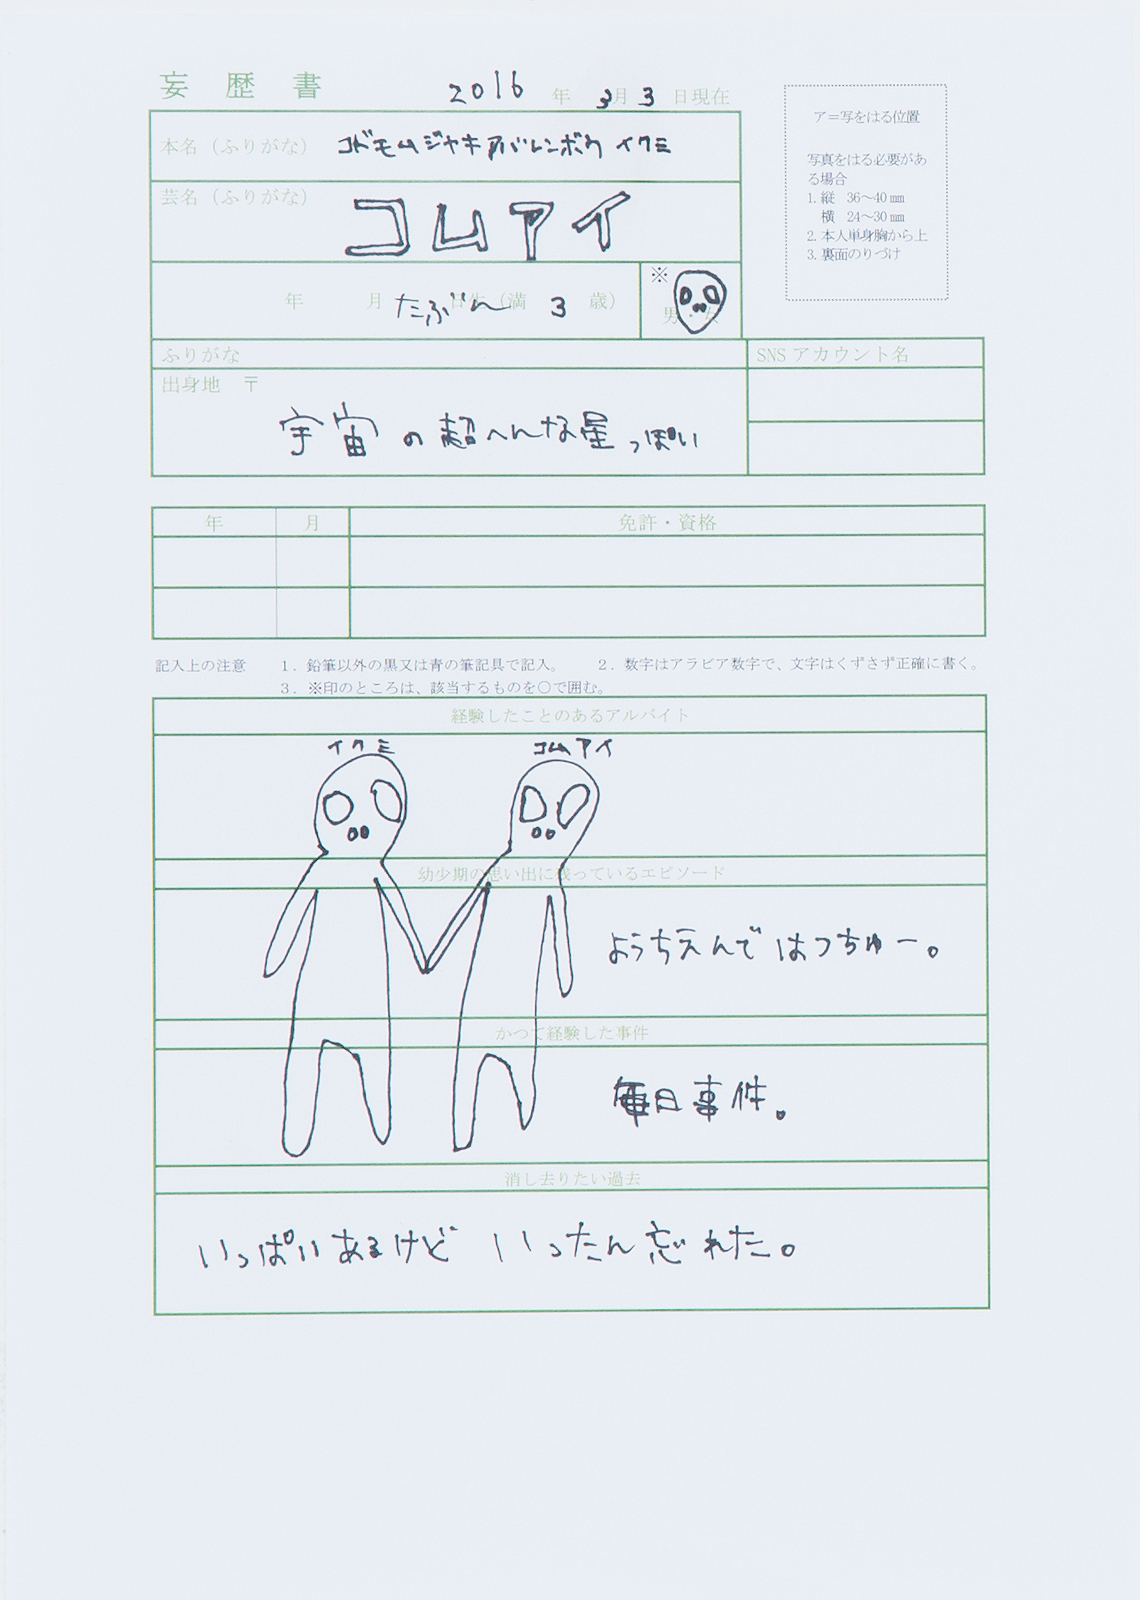 妄歴書
2016年 3月 3日現在
本名(ふりがな) コドモムジャキアバレンボウ イクミ
芸名(ふりがな) コムアイ
年 月 たぶん 日生(満 3 歳)
※
男・女
ア=写をはる位置
写真をはる必要があ
る場合
1. 縦 36~40㎜
横 24~30㎜
2. 本人単身胸から上
3. 裏面のりづけ
ふりがな
SNSアカウント名
出身地 〒
宇宙の超へんな星っぽい
年 月 免許・資格
記入上の注意 1.鉛筆以外の黒又は青の筆記具で記入。 2.数字はアラビア数字で、文字はくずさず正確に書く。
3.※印のところは、該当するものを○で囲む。
経験したことのあるアルバイト
イクミ コムアイ
幼少期の思い出に残っているエピソード
ようちえんで はつちゅー。
かつて経験した事件
毎日事件。
消し去りたい過去
いっぱいあるけど いったん忘れた。